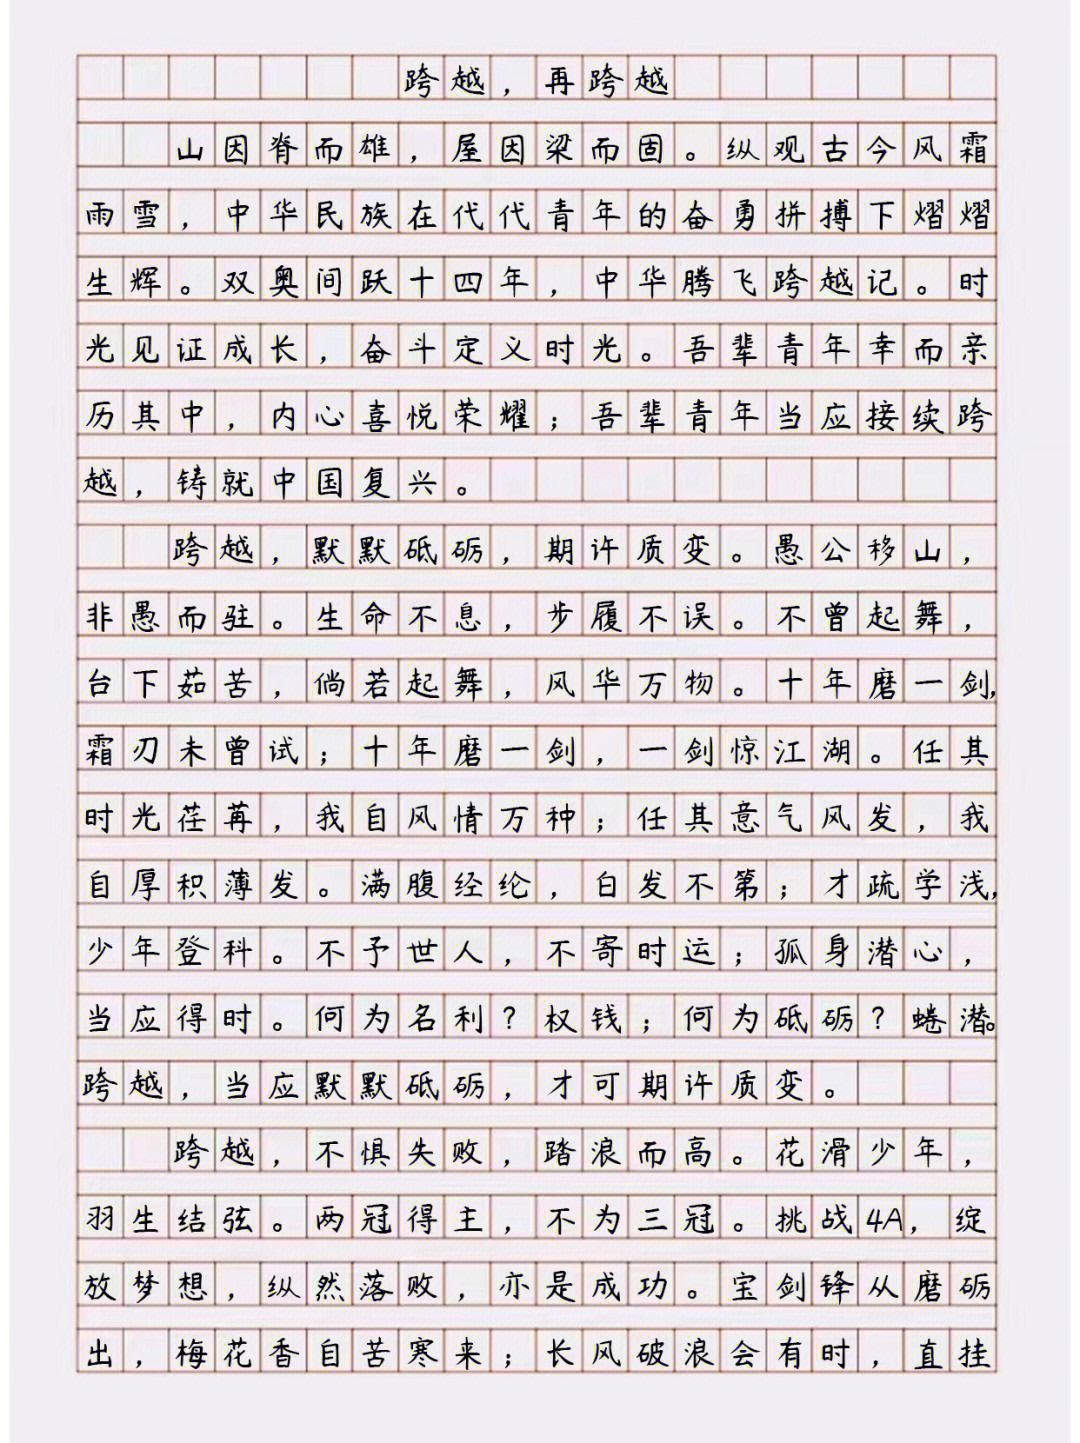 跨越，再跨越
山因脊而雄，屋因梁而固。纵观古今风霜
雨雪，中华民族在代代青年的奋勇拼搏下熠熠
生辉。双奥间跃十四年，中华腾飞跨越记。时
光见证成长，奋斗定义时光。吾辈青年幸而亲
历其中，内心喜悦荣耀；吾辈青年当应接续跨
越，铸就中国复兴。
跨越，默默砥砺，期许质变。愚公移山，
非愚而驻。生命不息，步履不误。不曾起舞，
台下茹苦，倘若起舞，风华万物。十年磨一剑，
霜刃未曾试；十年磨一剑，一剑惊江湖。任其
时光荏苒，我自风情万种；任其意气风发，我
自厚积薄发。满腹经纶，白发不第；才疏学浅，
少年登科。不予世人，不寄时运；孤身潜心，
当应得时。何为名利？权钱；何为砥砺？蜷潜。
跨越，当应默默砥砺，才可期许质变。
跨越，不惧失败，踏浪而高。花滑少年，
羽生结弦。两冠得主，不为三冠。挑战4A，绽
放梦想，纵然落败，亦是成功。宝剑锋从磨砺
出，梅花香自苦寒来；长风破浪会有时，直挂